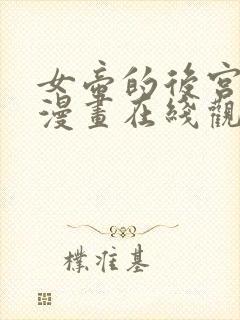 女帝的後宮
漫畫在綫觀
樸准基